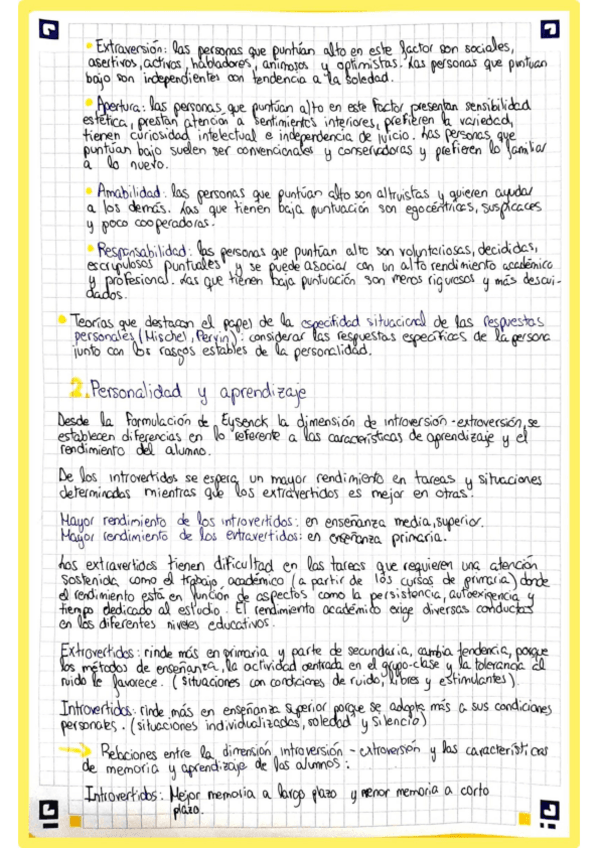 • Extraversión: las personas que puntúan alto en este factor son sociales,
asertivos, activos, habladores, animosos y optimistas. Las personas que puntuan
bajo son independientes con tendencia a la soledad.
• Apertura: las personas que puntúan alto en este factor presentan sensibilidad
estética, prestan atención a sentimientos interiores, prefieren la variedad,
tienen curiosidad intelectual e independencia de juicio. Las personas que
puntúan bajo suelen ser convencionales y conservadoras y prefieren lo familiar
a lo nuevo.
• Amabilidad: las personas que puntúan alto son altruistas y quieren ayudar
a los demás. Las que tienen baja puntuación son egocéntricas, suspicaces
y poco cooperadoras.
• Responsabilidad: las personas que puntúan alto son voluntariosas, decididas,
escrupulosos puntuales y se puede asociar con un alto rendimiento académico
y profesional. Las que tienen baja puntuación son menos rigurosos y más descui-
dados.
• Teorías que destacan el papel de la especifidad situacional de las respuestas
personales (Mischel, Pervin): considerar las respuestas específicas de la persona
junto con los rasgos estables de la personalidad.
2. Personalidad y aprendizaje
Desde la formulación de Eysenck la dimensión de introversión-extroversión, se
establecen diferencias en lo referente a las características de aprendizaje y el
rendimiento del alumno.
De los introvertidos se espera un mayor rendimiento en tareas y situaciones
determinadas mientras que los extravertidos es mejor en otras.
Mayor rendimiento de los introvertidos: en enseñanza media, superior.
Mayor rendimiento de los extravertidos: en enseñanza primaria.
Los extravertidos tienen dificultad en las tareas que requieren una atención
sostenida, como el trabajo académico (a partir de los cursos de primaria) donde
el rendimiento está en función de aspectos como la persistencia, autoexigencia y
tiempo dedicado al estudio. El rendimiento académico exige diversas conductas
en los diferentes niveles educativos.
Extrovertidos: rinde más en primaria y parte de secundaria, cambia tendencia, porque
los métodos de enseñanza, la actividad centrada en el grupo-clase y la tolerancia al
ruido le favorece. (situaciones con condiciones de ruido, libres y estimulantes).
Introvertidos: rinde más en enseñanza superior porque se adapta más a sus condiciones
personales. (situaciones individualizadas, soledad y silencio)
→ Relaciones entre la dimensión introversión-extroversión y las características
de memoria y aprendizaje de los alumnos:
Introvertidos: Mejor memoria a largo plazo y menor memoria a corto
plazo.